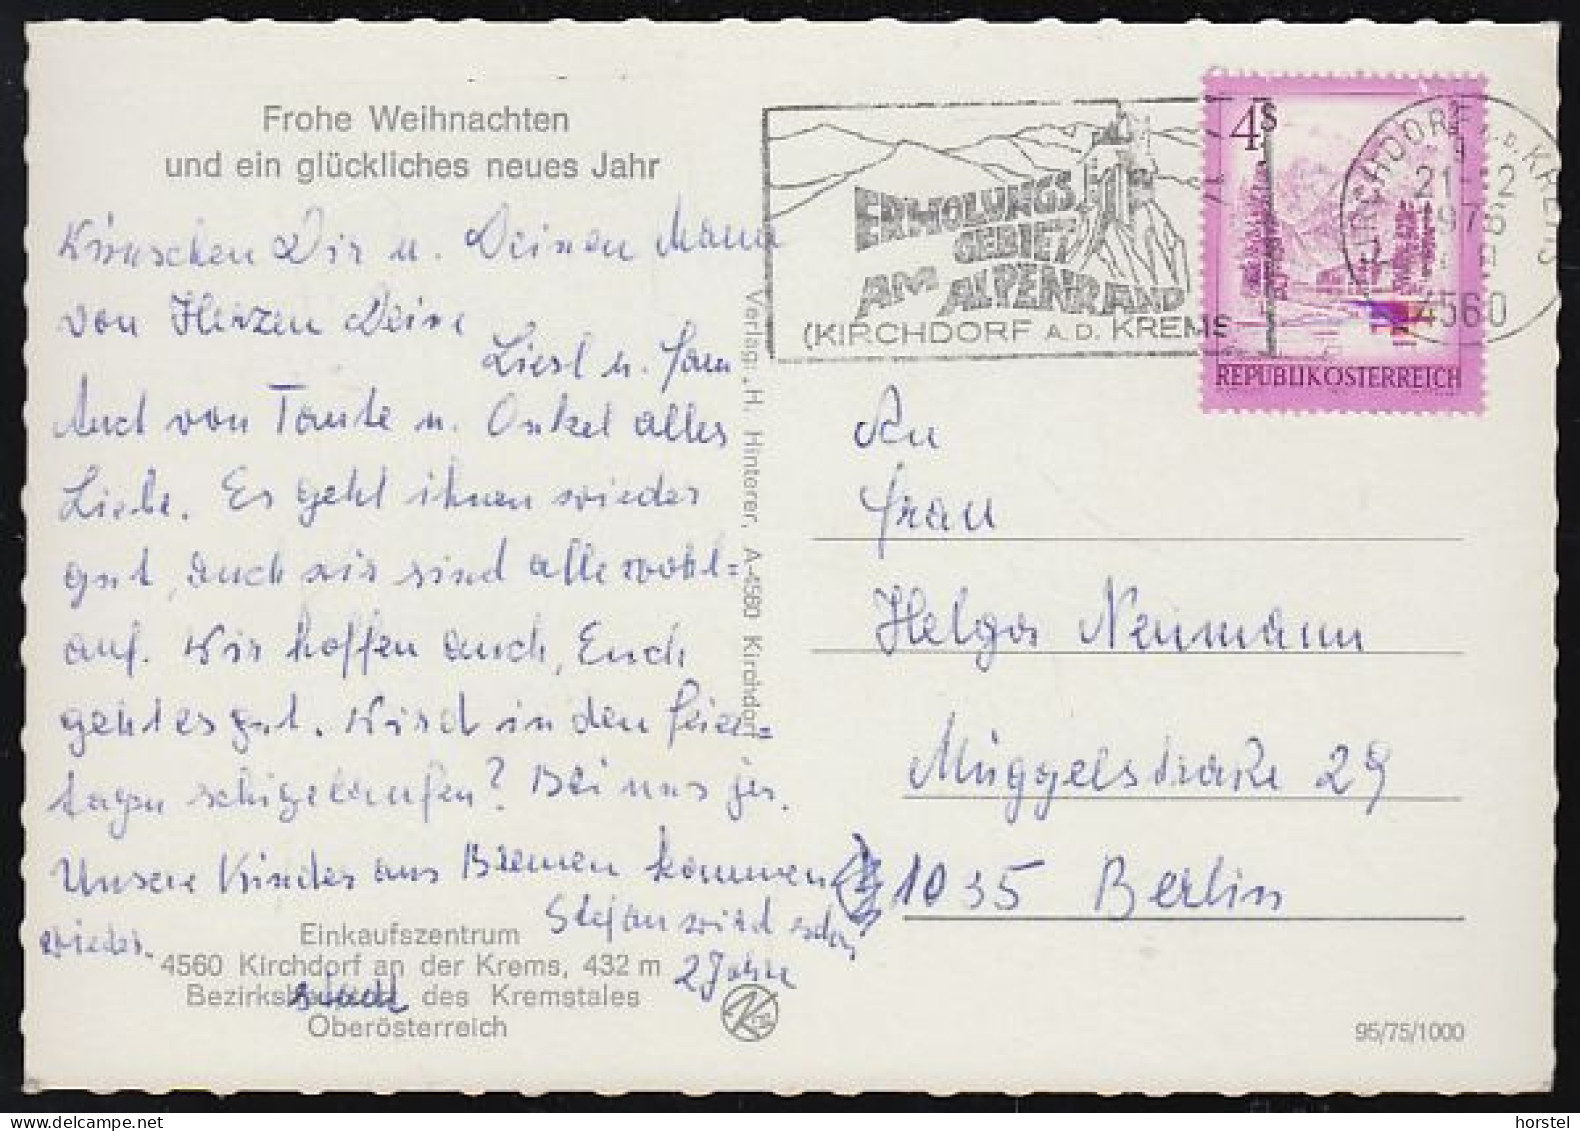 Frohe Weihnachten
und ein glückliches neues Jahr
Wünschen Dir u. Deinen Mann
von Herzen Deine
Liesl u. Fam
Auch von Tante u. Onkel alles
Liebe. Es geht ihnen wieder
gut, auch wir sind alle wohl=
auf. Wir hoffen auch, Euch
geht es gut. Wird in den Feier=
tagen schigelaufen? Bei uns ja.
Unsere Kinder aus Bremen kommen
wieder.
Stefan wird schon
2 Jahre
Einkaufszentrum
4560 Kirchdorf an der Krems, 432 m
Bezirksstadt des Kremstales
Oberösterreich
Verlag: H. Hinterer, A-4560 Kirchdorf
ERHOLUNGS
GEBIET
AM ALPENRAND
(KIRCHDORF A.D. KREMS
4S
REPUBLIK ÖSTERREICH
KIRCHDORF a.d. KREMS
4560
An
Frau
Helga Neumann
Müggelstraße 29
1035 Berlin
95/75/1000
horstel